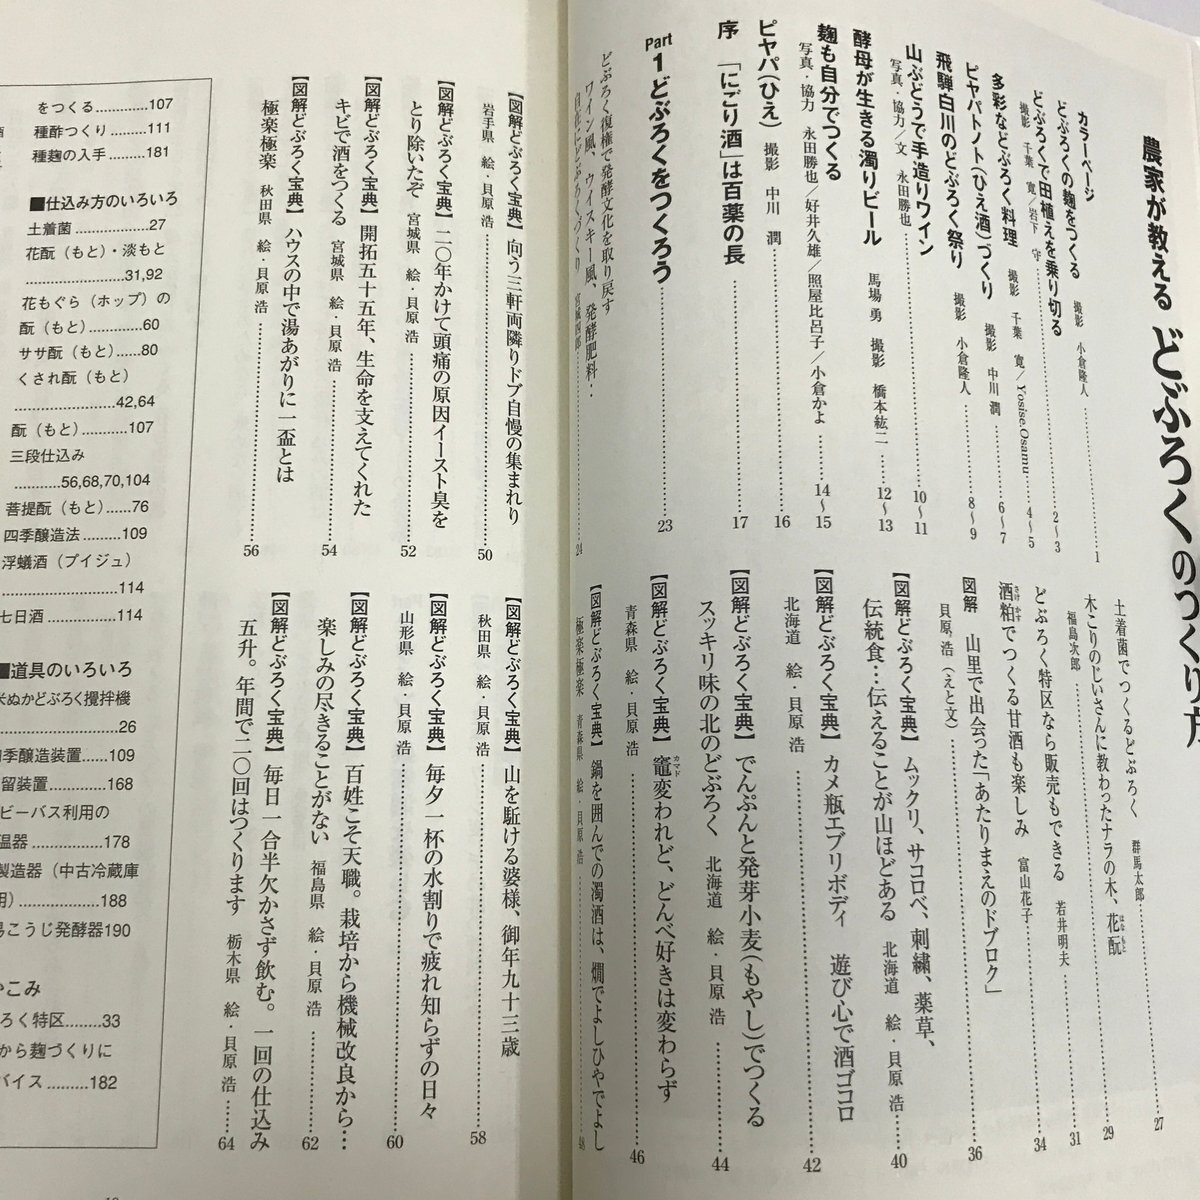 農家が教える どぶろくのつくり方
カラーページ
どぶろくの麹をつくる 撮影 小倉隆人……1
どぶろくで田植えを乗り切る
撮影 千葉 寛/岩下 守……2～3
多彩などぶろく料理 撮影 千葉 寛/Yosise.Osamu……4～5
ピヤパトノト(ひえ酒)づくり 撮影 中川 潤……6～7
飛騨白川のどぶろく祭り 撮影 小倉隆人……8～9
山ぶどうで手造りワイン
写真・協力/文 永田勝也……10～11
酵母が生きる濁りビール 馬場 勇 撮影 橋本紘二……12～13
麹も自分でつくる
写真・協力 永田勝也/好井久雄/照屋比呂子/小倉かよ……14～15
ピヤパ(ひえ) 撮影 中川 潤……16
序 「にごり酒」は百薬の長……17
Part 1 どぶろくをつくろう……23
どぶろく復権で発酵文化を取り戻す
ワイン風、ウイスキー風、発酵肥料・
自在にどぶろくづくり 宮城四郎……24
土着菌でつくるどぶろく 群馬太郎……27
木こりのじいさんに教わったナラの木、花酛
福島次郎……29
どぶろく特区なら販売もできる 若井明夫……31
酒粕でつくる甘酒も楽しみ 富山花子……34
図解 山里で出会った「あたりまえのドブロク」
貝原 浩(えと文)……36
【図解どぶろく宝典】 ムックリ、サコロベ、刺繍、薬草、
伝統食…伝えることが山ほどある 北海道 絵・貝原 浩……40
【図解どぶろく宝典】 カメ瓶エブリボディ 遊び心で酒ゴコロ
北海道 絵・貝原 浩……42
【図解どぶろく宝典】 でんぷんと発芽小麦(もやし)でつくる
スッキリ味の北のどぶろく 北海道 絵・貝原 浩……44
【図解どぶろく宝典】 竈変われど、どんべ好きは変わらず
青森県 絵・貝原 浩……46
【図解どぶろく宝典】 鍋を囲んでの濁酒は、燗でよしひやでよし
極楽極楽 青森県 絵・貝原 浩……48
【図解どぶろく宝典】 向う三軒両隣りドブ自慢の集まれり
岩手県 絵・貝原 浩……50
【図解どぶろく宝典】 二〇年かけて頭痛の原因イースト臭を
とり除いたぞ 宮城県 絵・貝原 浩……52
【図解どぶろく宝典】 開拓五十五年、生命を支えてくれた
キビで酒をつくる 宮城県 絵・貝原 浩……54
【図解どぶろく宝典】 ハウスの中で湯あがりに一盃とは
極楽極楽 秋田県 絵・貝原 浩……56
【図解どぶろく宝典】 山を駈ける婆様、御年九十三歳
秋田県 絵・貝原 浩……58
【図解どぶろく宝典】 毎夕一杯の水割りで疲れ知らずの日々
山形県 絵・貝原 浩……60
【図解どぶろく宝典】 百姓こそ天職。栽培から機械改良から…
楽しみの尽きることがない 福島県 絵・貝原 浩……62
【図解どぶろく宝典】 毎日一合半欠かさず飲む。一回の仕込み
五升。年間で二〇回はつくります 栃木県 絵・貝原 浩……64
をつくる……107
種酢つくり……111
種麹の入手……181
■仕込み方のいろいろ
土着菌……27
花酛(もと)・淡もと
……31,92
花もぐら(ホップ)の
酛(もと)……60
ササ酛(もと)……80
くされ酛(もと)
……42,64
酛(もと)……107
三段仕込み
……56,68,70,104
菩提酛(もと)……76
四季醸造法……109
浮蟻酒(プイジュ)
……114
七日酒……114
■道具のいろいろ
米ぬかどぶろく攪拌機
……26
季醸造装置……109
留装置……168
ビーバス利用の
温器……178
製造器(中古冷蔵庫
用)……188
易こうじ発酵器190
かこみ
ろく特区……33
から麹づくりに
バイス……182